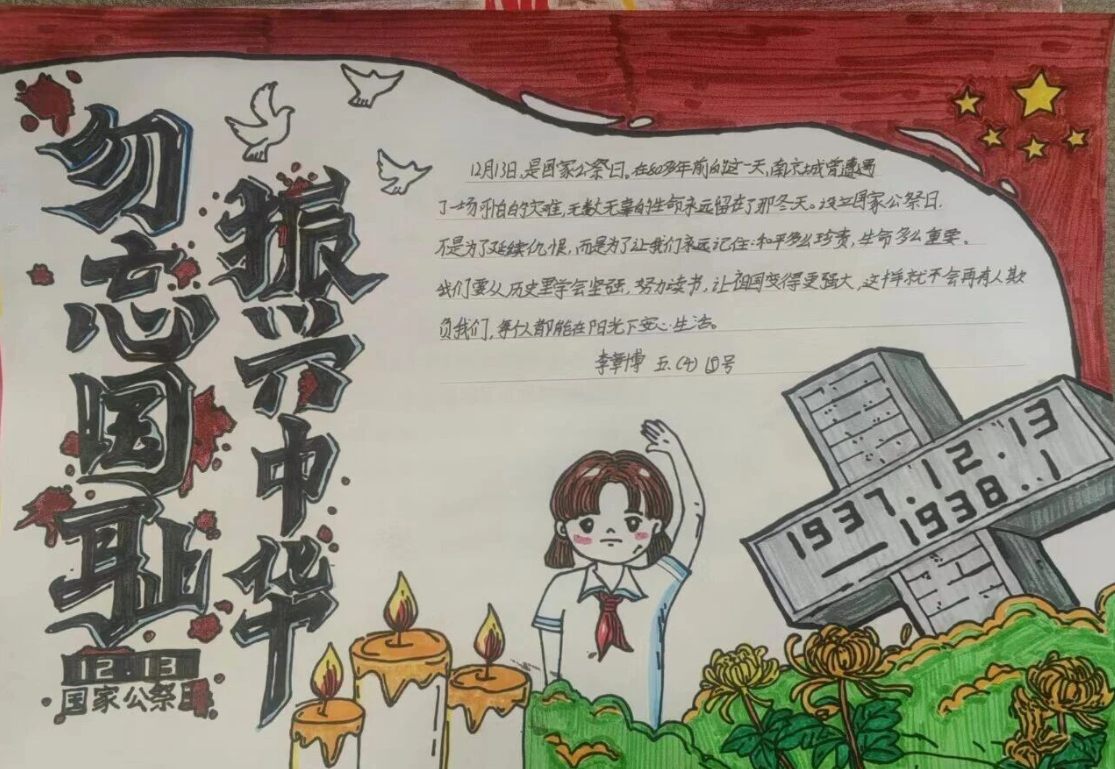 勿忘国耻
振兴中华
12.13
国家公祭日
12月13日,是国家公祭日。在80多年前的这一天,南京城曾遭遇
了一场可怕的灾难,无数无辜的生命永远留在了那冬天。设立国家公祭日,
不是为了延续仇恨,而是为了让我们永远记住:和平多么珍贵,生命多么重要。
我们要从历史里学会坚强,努力读书,让祖国变得更强大,这样就不会再有人欺
负我们,每人都能在阳光下安心生活。
李章博 五.(4) 15号
1937.12.13
—1938.1